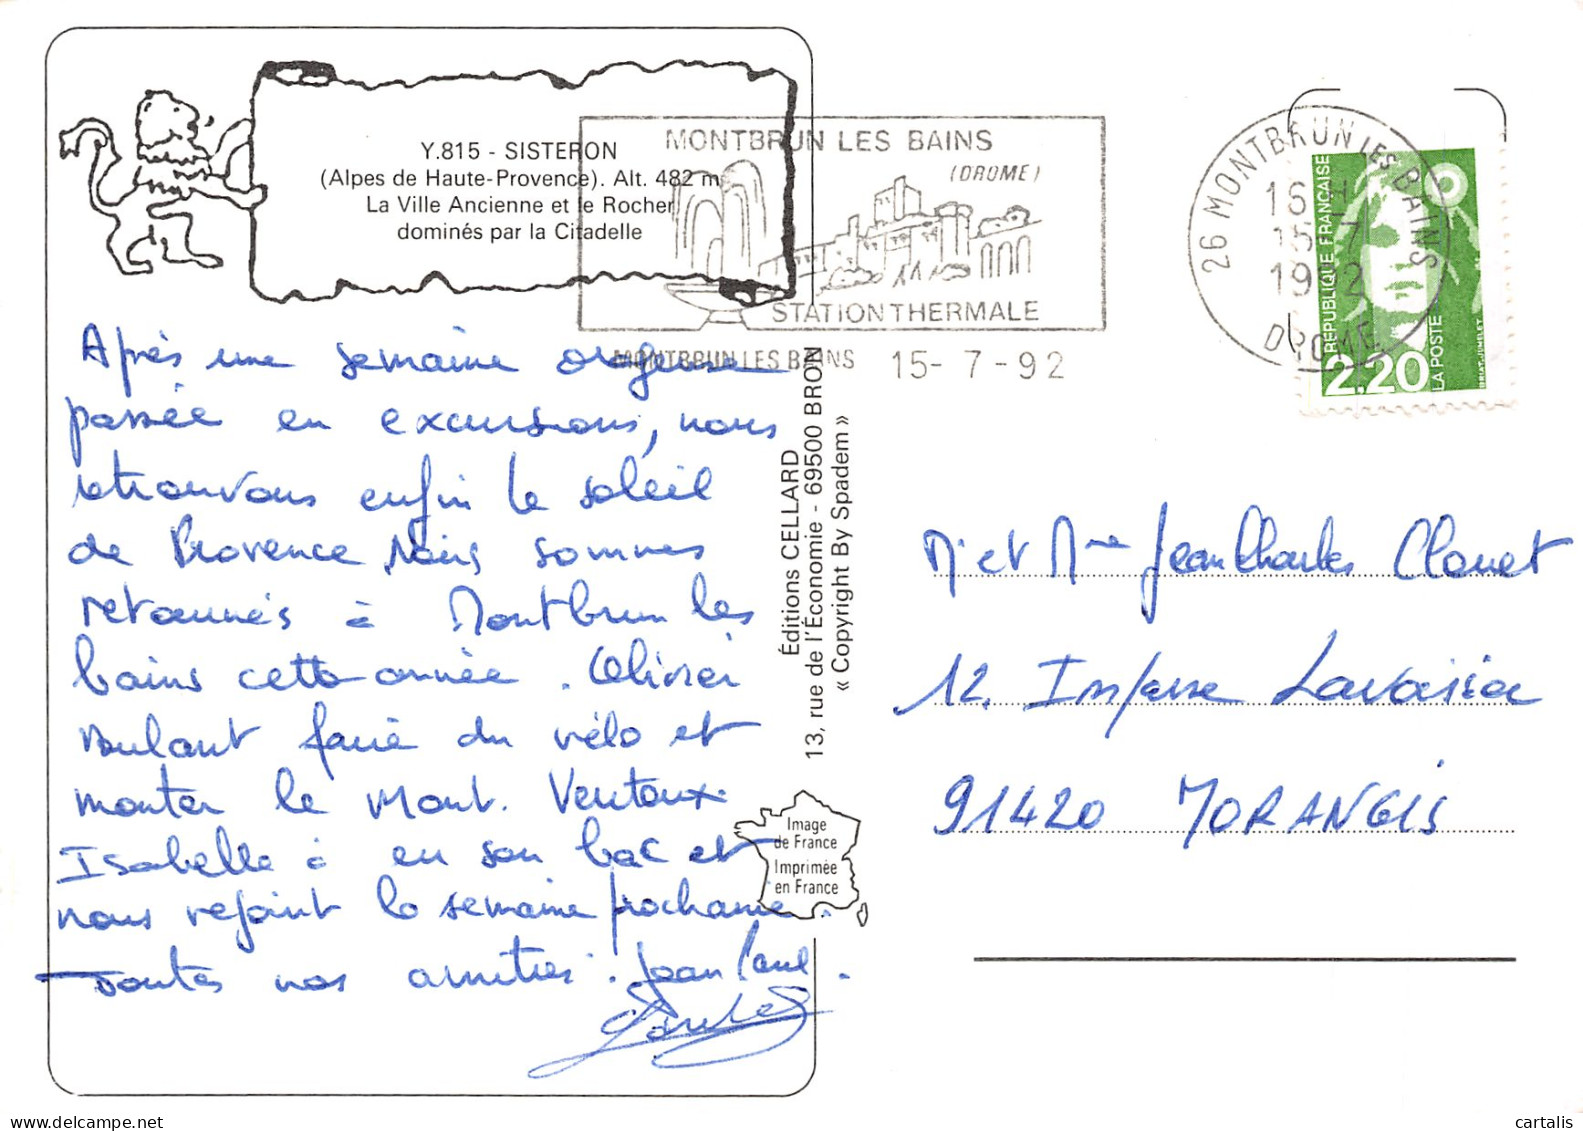 Y.815 - SISTERON
(Alpes de Haute-Provence). Alt. 482 m
La Ville Ancienne et le Rocher
dominés par la Citadelle
MONTBRUN LES BAINS
(DROME)
STATION THERMALE
MONTBRUN LES BAINS 15- 7 -92
26 MONTBRUN LES BAINS
16 H
15-7
1992
DROME
RÉPUBLIQUE FRANÇAISE
2.20
LA POSTE
BRIAT-JUMELET
Après une semaine orageuse
passée en excursions, nous
retrouvons enfin le soleil
de Provence Nous sommes
retournés à Montbrun les
bains cette année. Olivier
voulant faire du vélo et
monter le Mont. Ventoux.
Isabelle à eu son bac et
nous rejoint la semaine prochaine.
Toutes nos amitiés. Jean Paul.
Éditions CELLARD
13, rue de l'Économie - 69500 BRON
« Copyright By Spadem »
Image
de France
Imprimée
en France
Mr et Mme Jean Charles Clouet
12. Impasse Lavoisier
91420 MORANGIS
cartalis